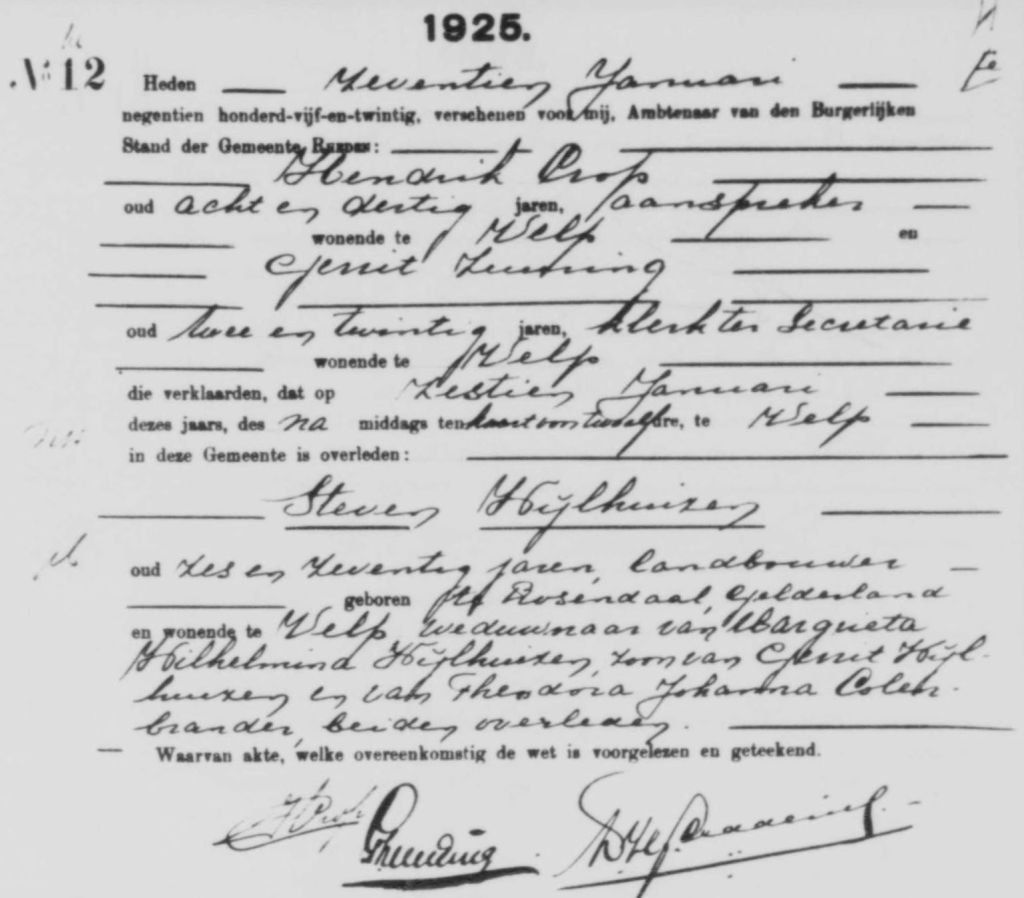 1925.
No 12 Heden zeventien Januari
negentien honderd-vijf-en-twintig, verschenen voor mij, Ambtenaar van den Burgerlijken
Stand der Gemeente RHEDEN:
Hendrik Prop
oud acht en dertig jaren, aanspreker
wonende te Velp en
Gerrit
oud twee en twintig jaren, klerk ter Secretarie
wonende te Velp
die verklaarden, dat op zestien Januari
dezes jaars, des na middags ten kwart voor twaalf ure, te Velp
in deze Gemeente is overleden:
Steven Wijlhuizen
oud zes en zeventig jaren, landbouwer
geboren te Rosendaal, Gelderland
en wonende te Velp, weduwnaar van Margrieta
Wilhelmina Wijlhuizen, zoon van Gerrit Wijl-
huizen en van Theodora Johanna Colen-
brander, beiden overleden.
Waarvan akte, welke overeenkomstig de wet is voorgelezen en geteekend.